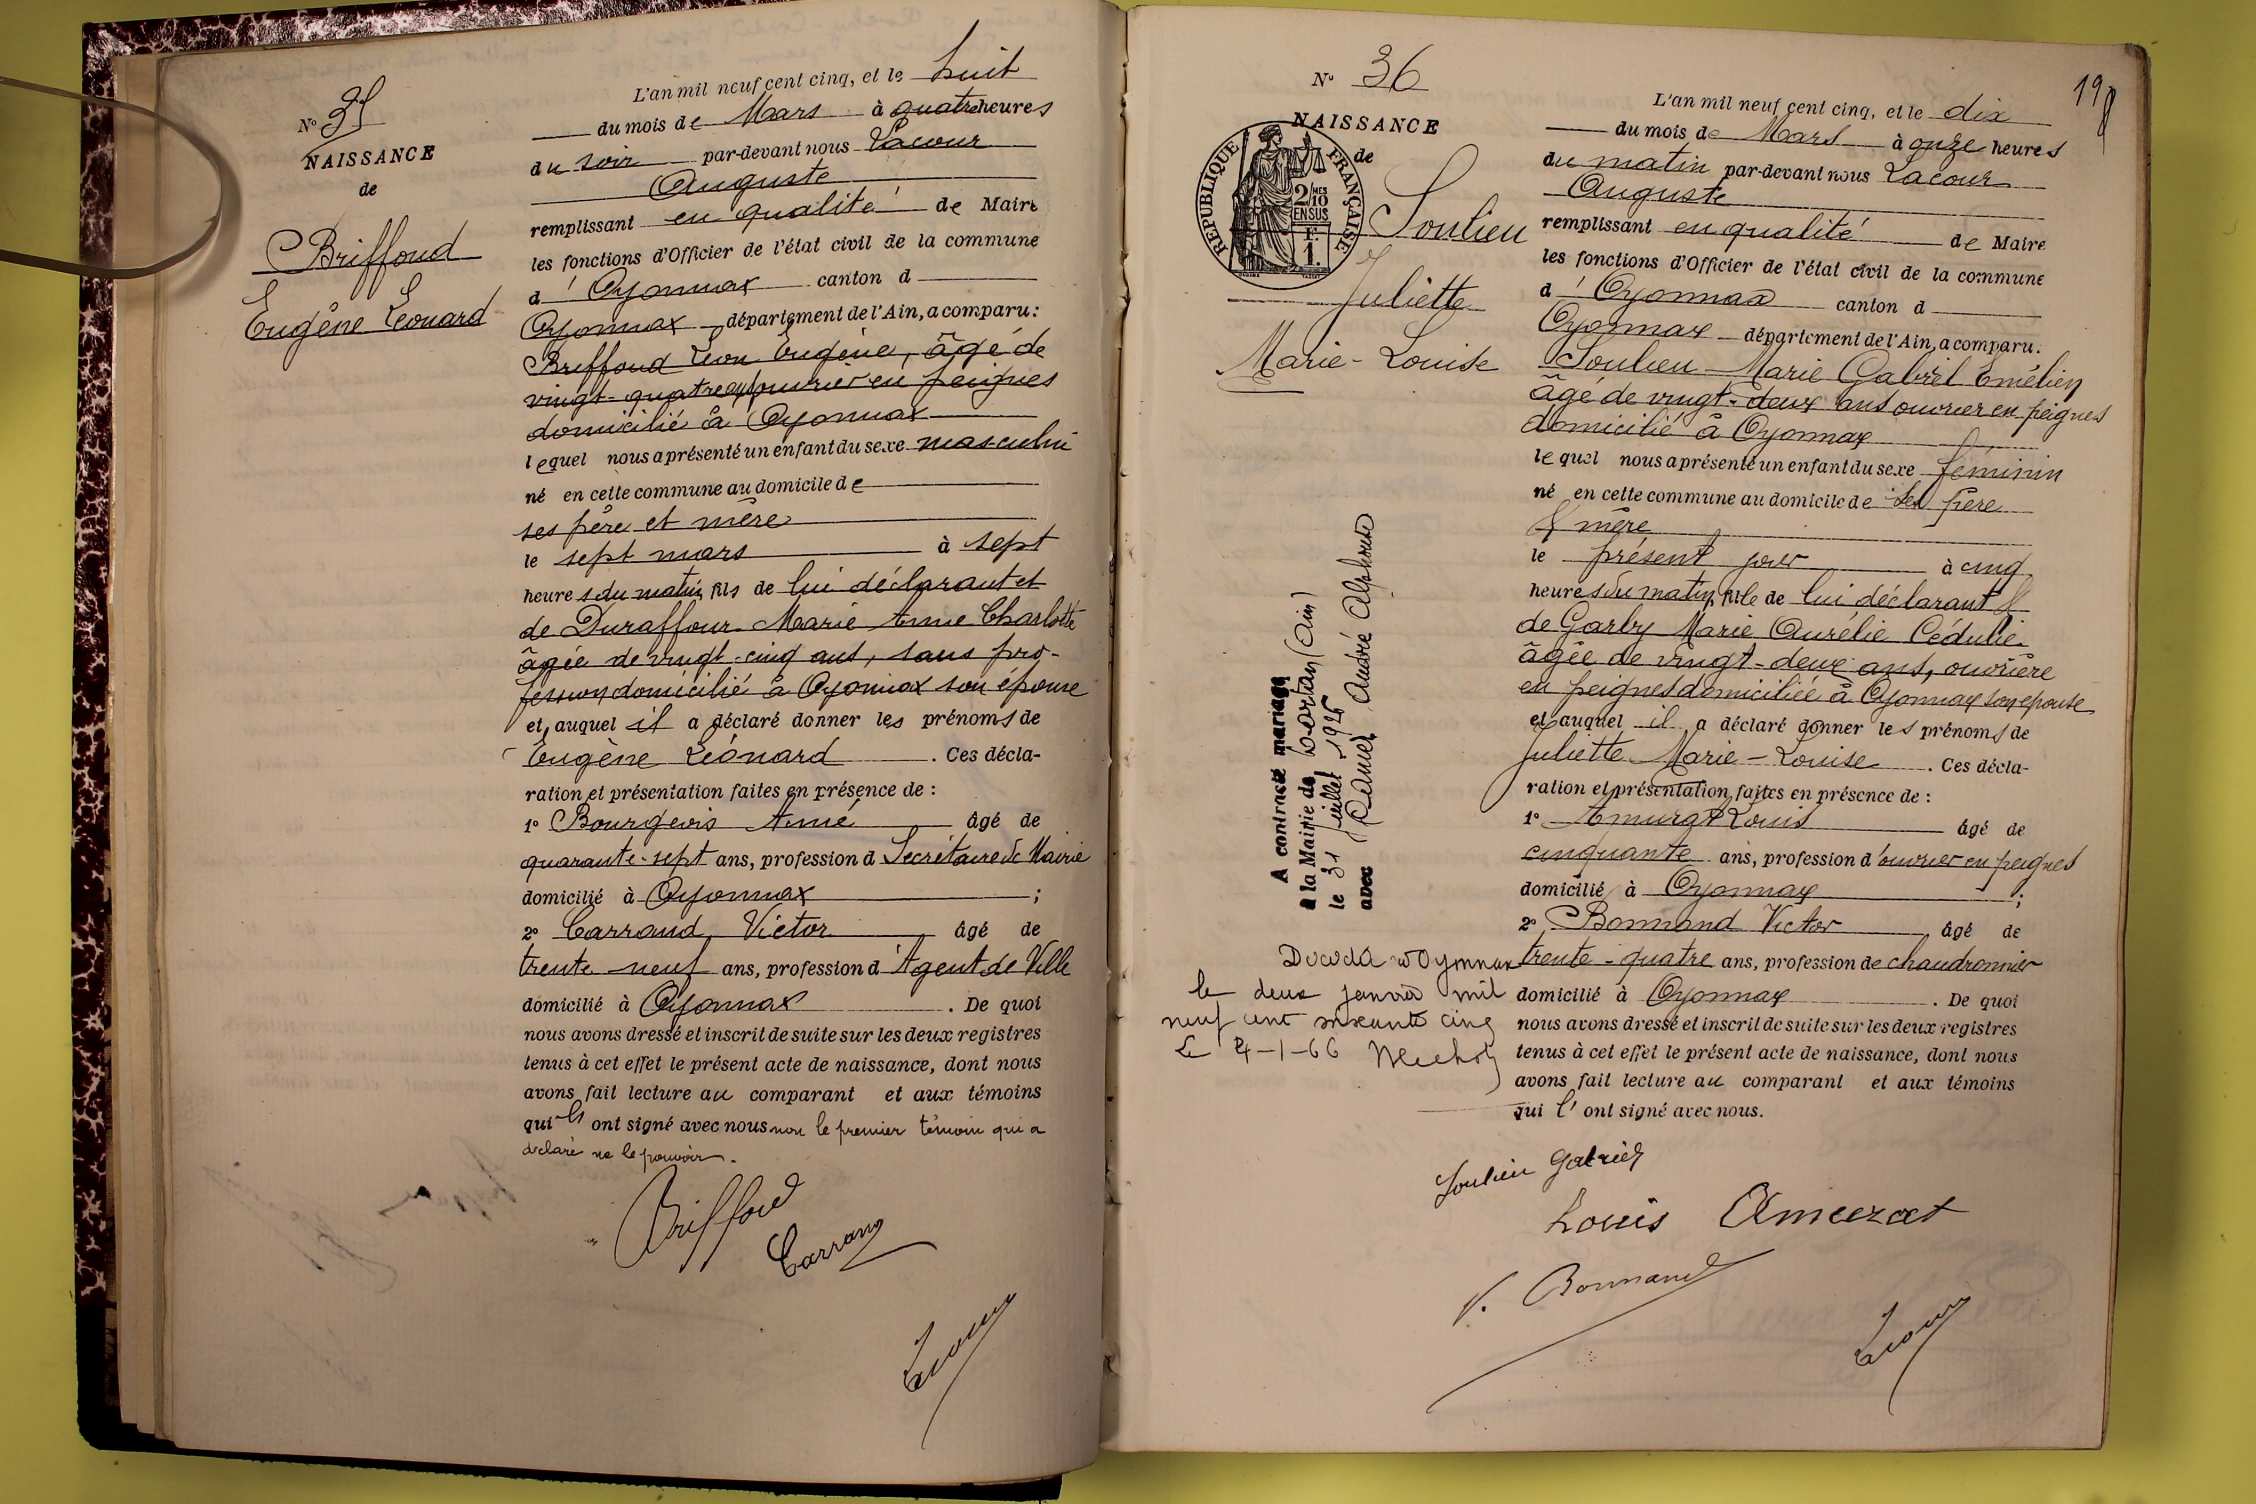 N° 35
NAISSANCE
de
Briffoud
Eugène Léonard
L'an mil neuf cent cinq, et le huit
du mois de Mars à quatre heures
du soir par-devant nous Lacour
Auguste
remplissant en qualité de Maire
les fonctions d'Officier de l'état civil de la commune
d'Oyonnax canton d
Oyonnax département de l'Ain, a comparu:
Briffoud Léon Eugène, âgé de
vingt-quatre ans ouvrier en peignes
domicilié à Oyonnax
lequel nous a présenté un enfant du sexe masculin
né en cette commune au domicile de
ses père et mère
le sept mars à sept
heures du matin, fils de lui déclarant et
de Duraffour Marie Anne Charlotte
âgée de vingt-cinq ans, sans pro-
fession domicilié à Oyonnax son épouse
et, auquel il a déclaré donner les prénoms de
Eugène Léonard. Ces décla-
ration et présentation faites en présence de :
1° Bourgeois Aimé âgé de
quarante-sept ans, profession d Secrétaire de Mairie
domicilié à Oyonnax ;
2° Carrand Victor âgé de
trente neuf ans, profession d'Agent de Ville
domicilié à Oyonnax. De quoi
nous avons dressé et inscrit de suite sur les deux registres
tenus à cet effet le présent acte de naissance, dont nous
avons fait lecture au comparant et aux témoins
qui ont signé avec nous non le premier témoin qui a
déclaré ne le pouvoir.
Briffoud
Carrand
Lacour
19
N° 36
NAISSANCE
de
RÉPUBLIQUE FRANÇAISE
2/10 MES
EN SUS
F.
1.
Soulieu
Juliette
Marie-Louise
A contracté mariage
à la Mairie de Dortan (Ain)
le 31 juillet 1926
avec André Alphonse
Décédée à Oyonnax
le deux janvier mil
neuf cent soixante cinq
Le 4-1-66
L'an mil neuf cent cinq, et le dix
du mois de Mars à onze heures
du matin par-devant nous Lacour
Auguste
remplissant en qualité de Maire
les fonctions d'Officier de l'état civil de la commune
d'Oyonnax canton d
Oyonnax département de l'Ain, a comparu.
Soulieu Marie Gabriel Emélien
âgé de vingt-deux ans ouvrier en peignes
domicilié à Oyonnax
lequel nous a présenté un enfant du sexe féminin
né en cette commune au domicile de ses père
& mère
le présent jour à cinq
heures du matin, fille de lui déclarant &
de Garby Marie Aurélie Cédulie
âgée de vingt-deux ans, ouvrière
en peignes domiciliée à Oyonnax son épouse
et auquel il a déclaré donner les prénoms de
Juliette Marie-Louise. Ces décla-
ration et présentation faites en présence de :
1° Amurat Louis âgé de
cinquante ans, profession d'ouvrier en peignes
domicilié à Oyonnax ;
2° Bonnand Victor âgé de
trente-quatre ans, profession de chaudronnier
domicilié à Oyonnax. De quoi
nous avons dressé et inscrit de suite sur les deux registres
tenus à cet effet le présent acte de naissance, dont nous
avons fait lecture au comparant et aux témoins
qui l'ont signé avec nous.
Soulieu Gabriel
Louis Amurat
V. Bonnand
Lacour